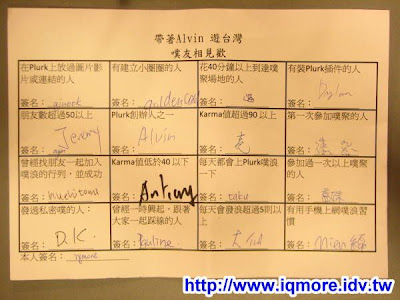 帶著Alvin 遊台灣
噗友相見歡
在Plurk上放過圖片影片或連結的人
簽名:
有建立小圈圈的人
簽名:
花40分鐘以上到達噗聚場地的人
簽名:
有裝Plurk插件的人
簽名: Dylan
朋友數超過50以上
簽名: Jeremy
Plurk創辦人之一
簽名: Alvin
Karma值超過90 以上
簽名:
第一次參加噗聚的人
簽名:
曾經找朋友一起加入噗浪的行列,並成功
簽名:
Karma 值低於40以下
簽名:
每天都會上Plurk噗浪一下
簽名: taku
參加過一次以上噗聚的人
簽名:
發過私密噗的人:
簽名: D.K.
曾經一時興起,跟著大家一起踩線的人
簽名: Pauline
每天會發浪超過5則以上
簽名:
有用手機上網噗浪習慣
簽名:
本人簽名: iqmore
http://www.iqmore.idv.tw